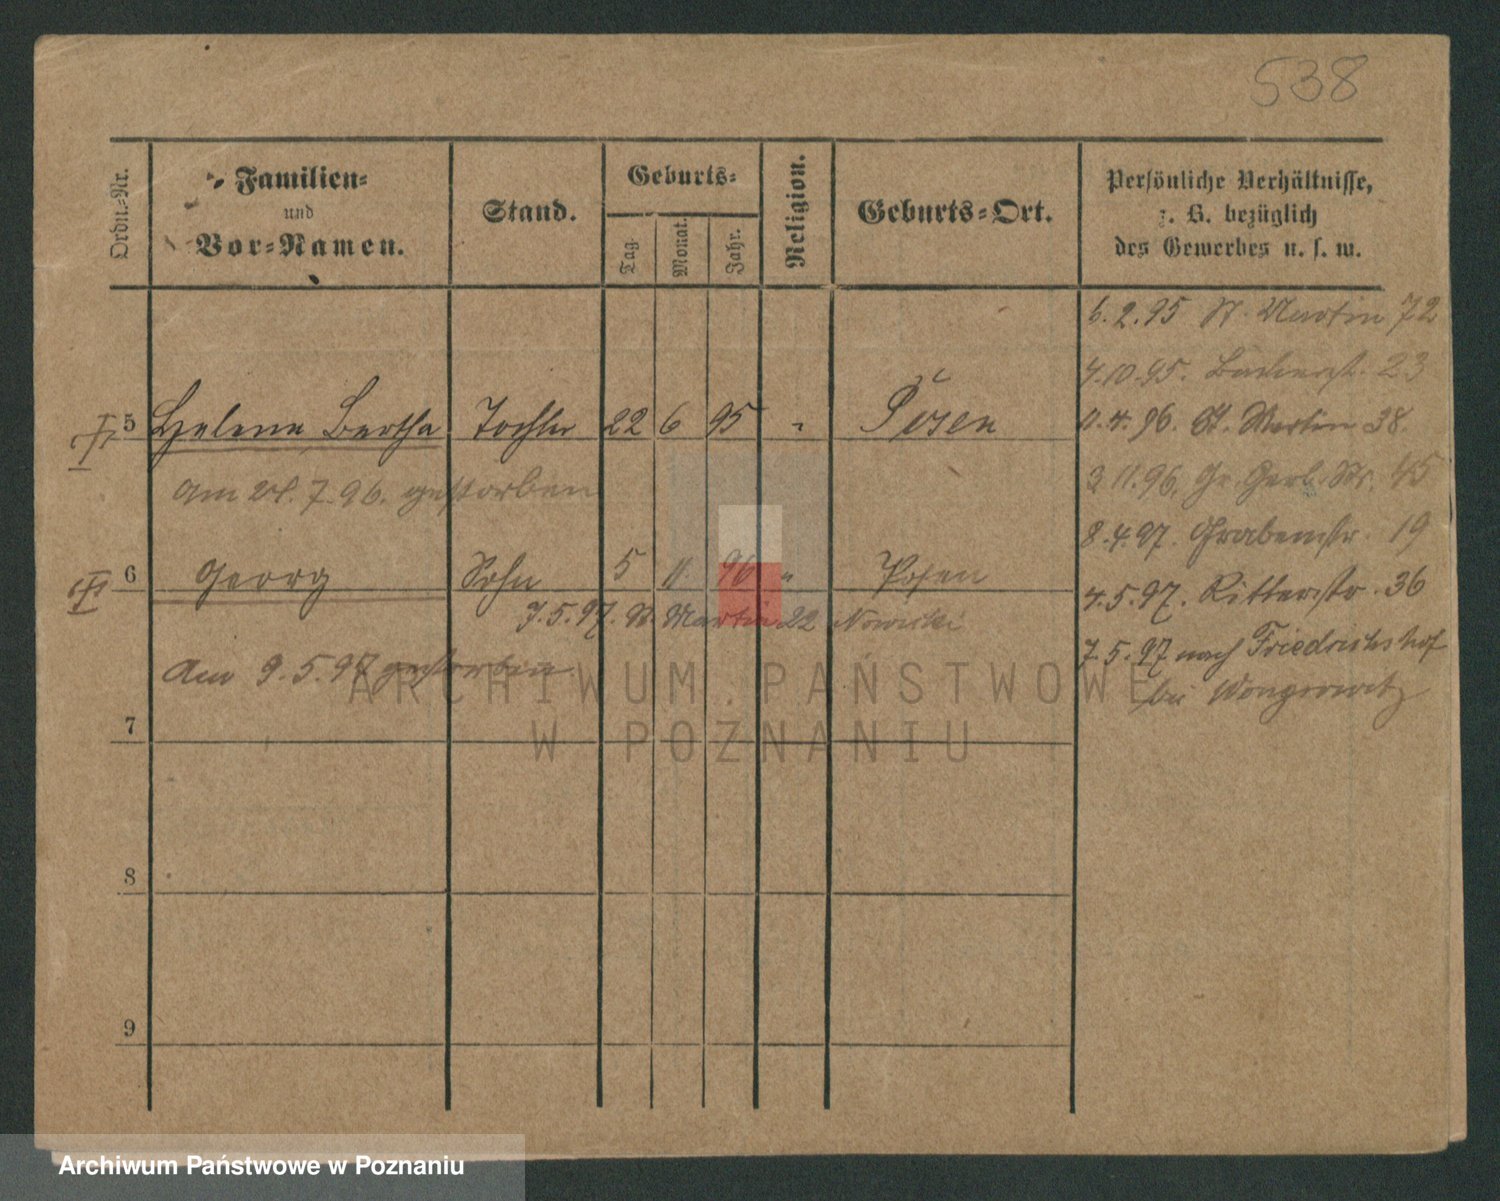 538
Ordn.-Nr.
Familien-
und
Vor-Namen.
Stand.
Geburts-
Tag.
Monat.
Jahr.
Religion.
Geburts-Ort.
Persönliche Verhältnisse,
z. B. bezüglich
des Gewerbes u. s. w.
6.2.95 St. Martin 72
4.10.95. Bäckerstr. 23
5 Helene Bertha Tochter 22 6 95 " Posen
4.96. St. Martin 38.
am 21.7.96. gestorben
3.11.96. Gr. Gerb. Str. 45
8.4.97. Grabenstr. 19
6 Georg Sohn 5 11. 96 " Posen
4.5.97. Ritterstr. 36
7.5.97. St. Martin 22 Nowicki
7.5.97 nach Friedrichshof
bei Wongrowitz
Am 9.5.97 gestorben
7
8
9
ARCHIWUM PAŃSTWOWE
W POZNANIU
Archiwum Państwowe w Poznaniu